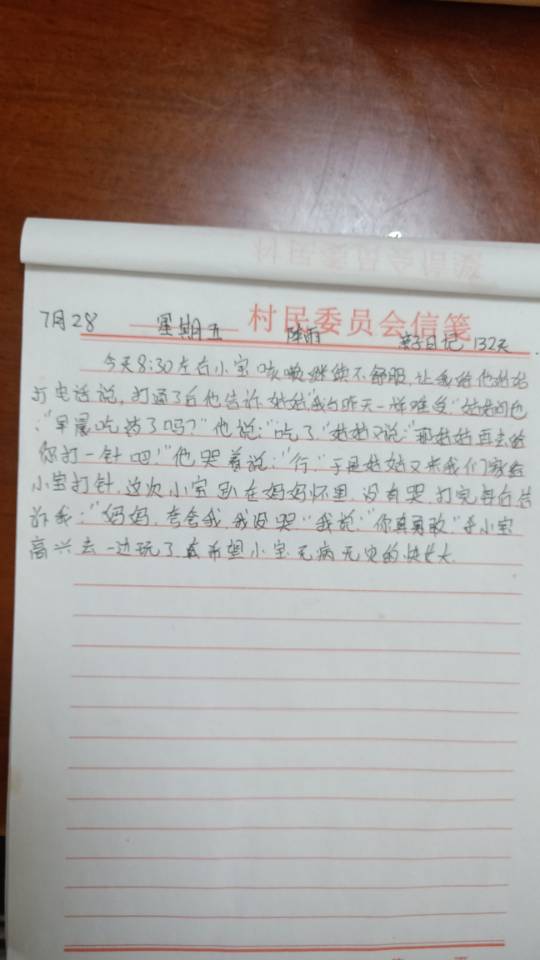 村民委员会信笺
7月28 星期五 阵雨 亲子日记 132天
今天8:30左右小宝咳嗽继续不舒服,让我给他姑姑
打电话说,打通了后他告诉姑姑"我和昨天一样难受"姑姑问他
:"早晨吃药了吗?"他说:"吃了"姑姑又说:"那姑姑再去给
你打一针吧!"他哭着说:"行"于是姑姑又来我们家给
小宝打针,这次小宝趴在妈妈怀里,没有哭,打完针后告
诉我:"妈妈,夸夸我,我没哭"我说:"你真勇敢"于小宝
高兴去一边玩了 真希望小宝无病无灾的快长大